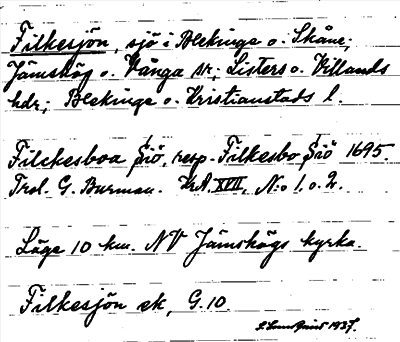 Filkesjön, sjö i Blekinge o. Skåne;
Jämshög o. Vånga sr; Listers o. Villands
hdr; Blekinge o. Kristianstads l.
Filckesboa Siö, resp. Filkesbo Siö 1695.
Trol. G. Burman. KrA XVII, N:o 1. o. 2.
Läge 10 km. NV Jämshögs kyrka.
Filkesjön ek, G. 10.
1937.